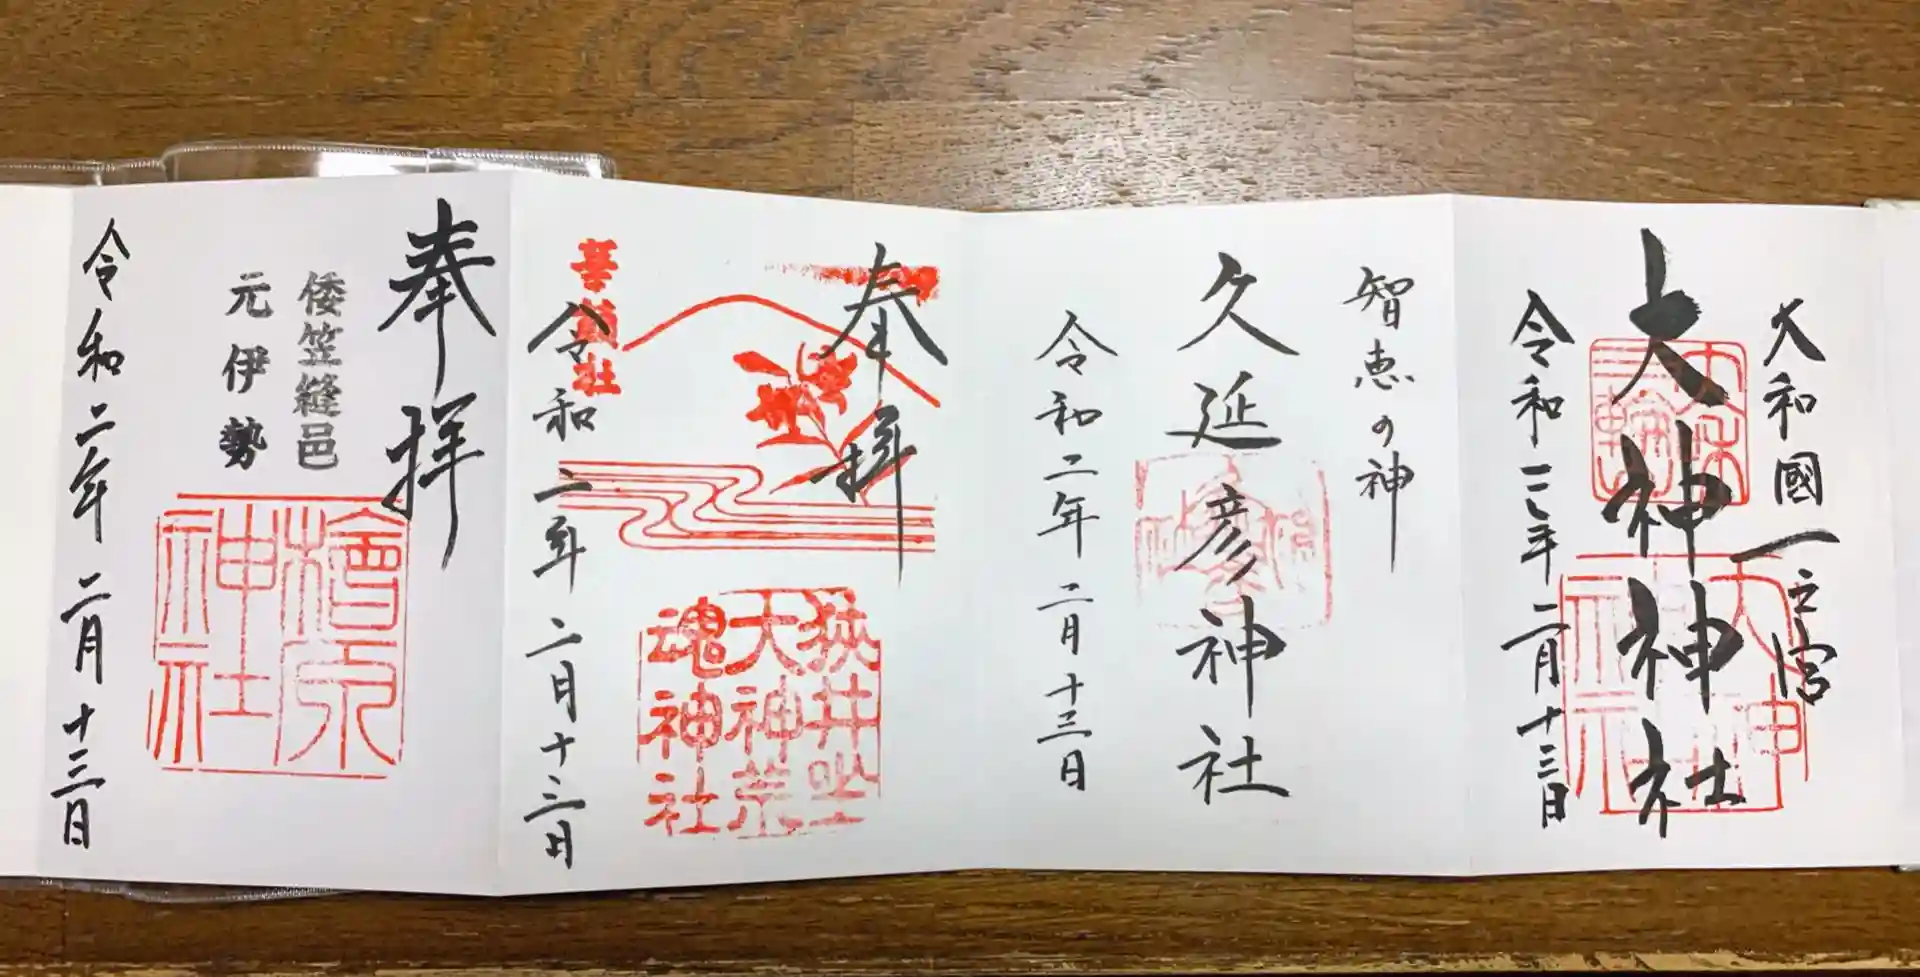 大和國一之宮
大神神社
三輪
大神神社
令和二年二月十三日
智恵の神
久延彦神社
令和二年二月十三日
奉拝
狭井坐
大神荒
魂神社
華鎮社
令和二年二月十三日
奉拝
倭笠縫邑
元伊勢
檜原
神社
令和二年二月十三日